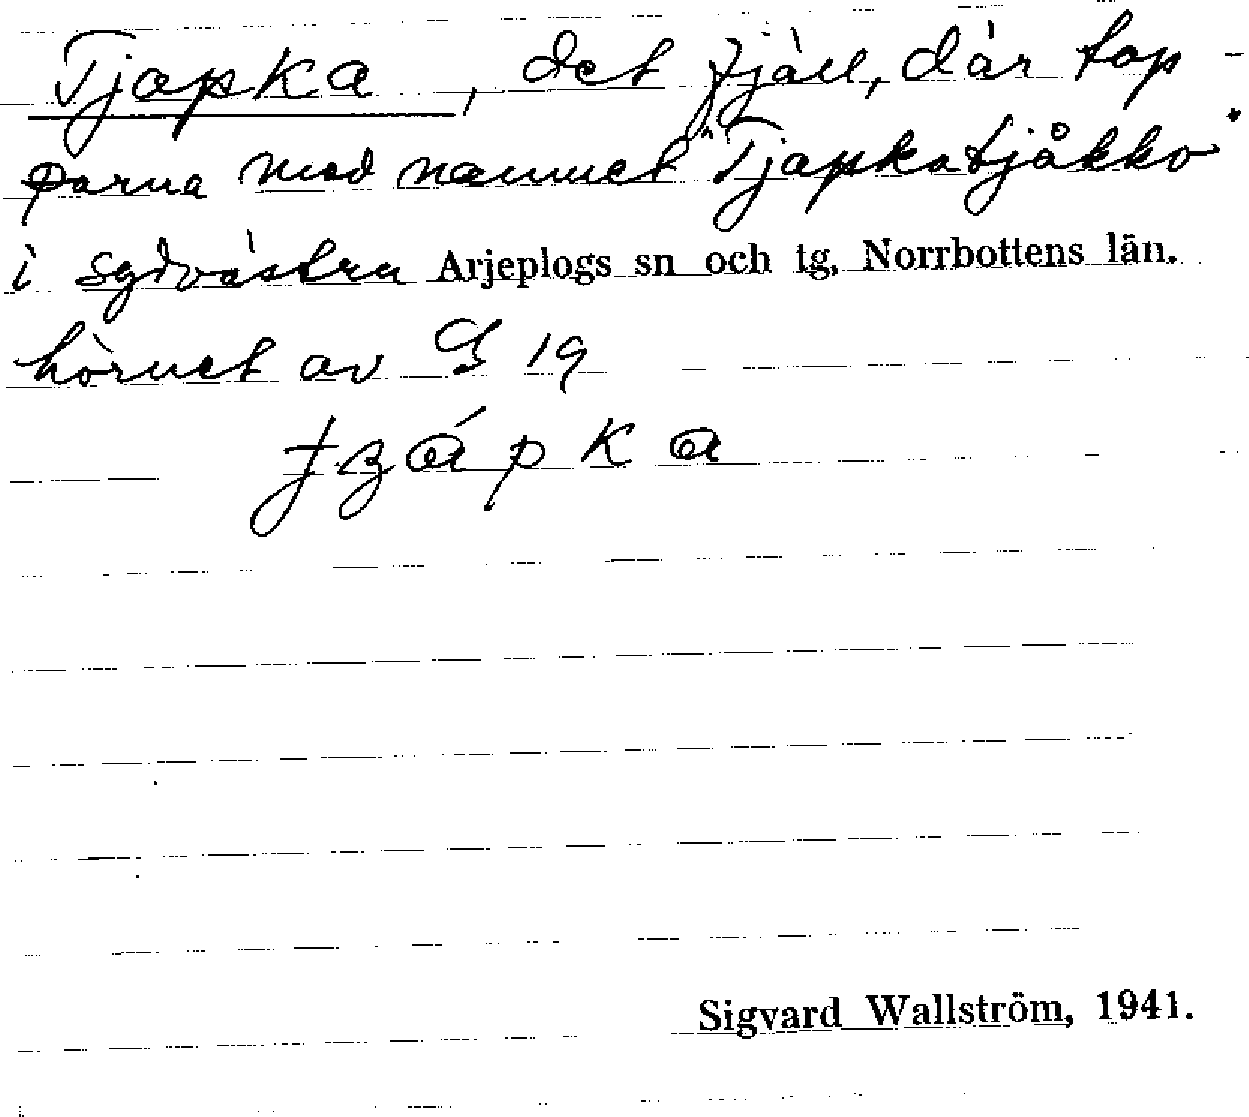 Tjapka, det fjäll, där top-
parna med namnet "Tjapkatjåkko"
i sydvästra Arjeplogs sn och tg, Norrbottens län.
hörnet av G 19
tʒápka
Sigvard Wallström, 1941.